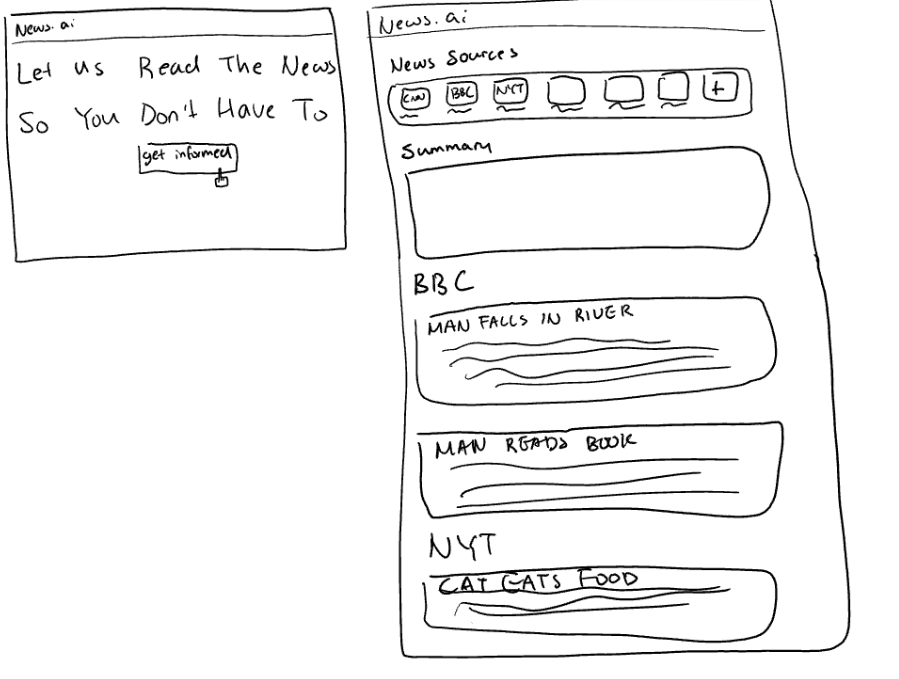 News.ai
Let us Read The News
So You Don't Have To
get informed
News.ai
News Sources
CNN BBC NYT +
Summary
BBC
MAN FALLS IN RIVER
MAN READS BOOK
NYT
CAT EATS FOOD